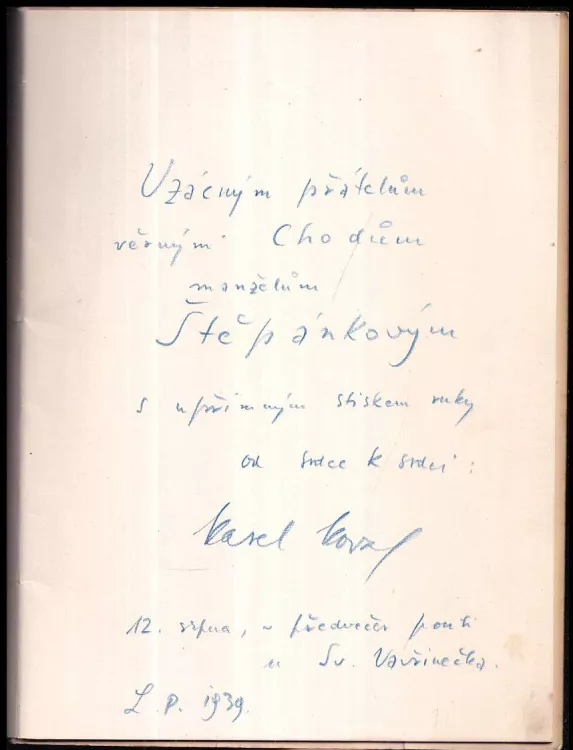 Vzácným přátelům
věrným Chodům
manželům
Štěpánkovým
s upřímným stiskem ruky
od srdce k srdci:
Karel Koval
12. srpna, v předvečer pouti
u Sv. Vavřinečka.
L. P. 1939.